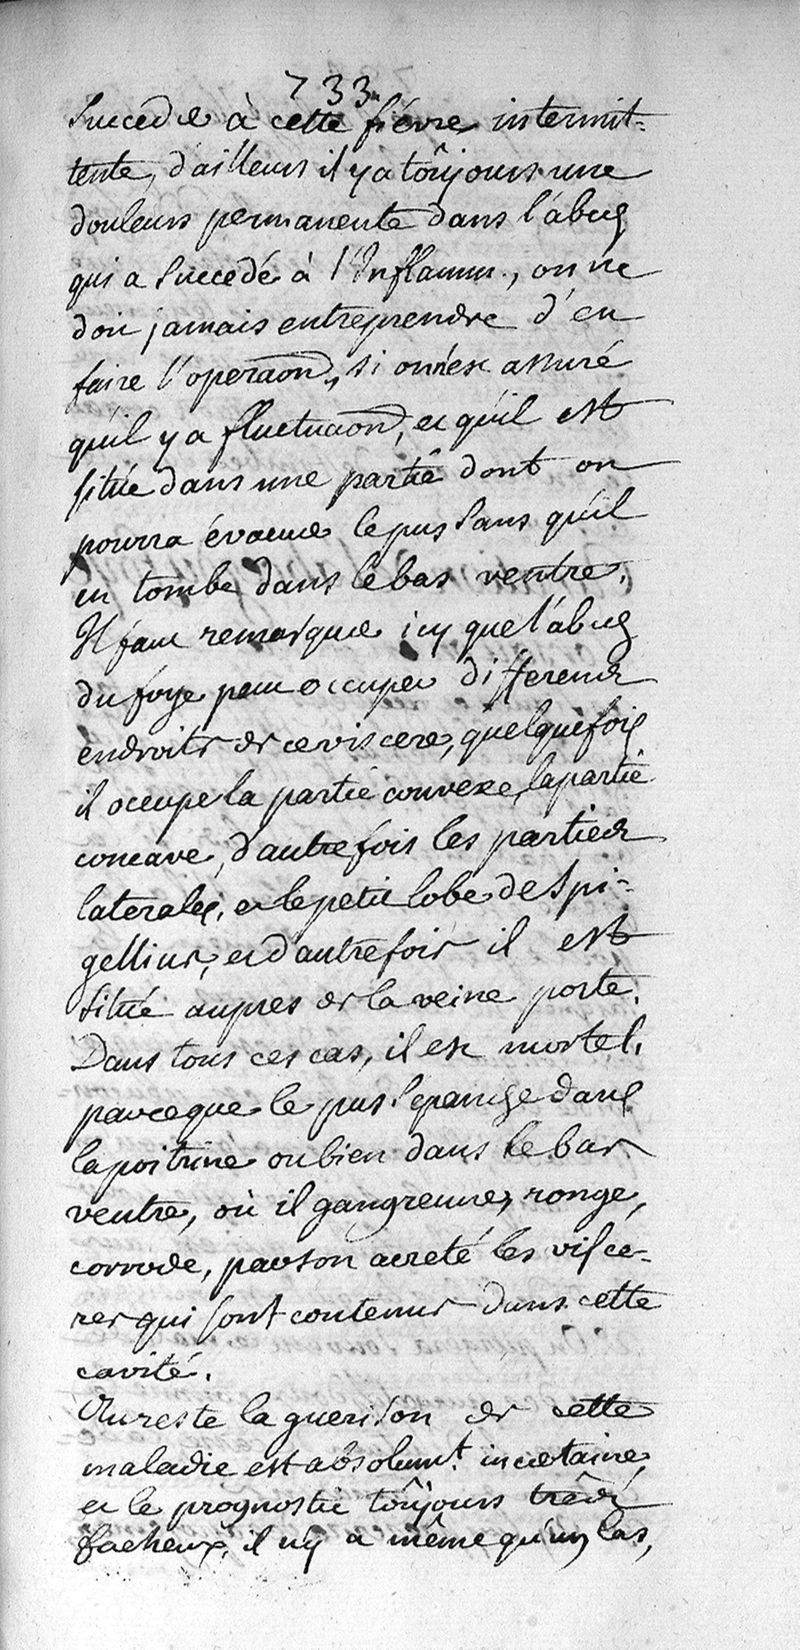 733.
succede à cette fiévre intermit=
tente, d'ailleurs il y a toûjours une
douleurs permanente dans l'abces
qui a succedé à l'Inflamm., on ne
doit jamais entreprendre d'en
faire l'operaon, si on n'est assuré
qu'il y a fluctuaon, et qu'il est
situé dans une partie dont on
pourra évacuer le pus sans qu'il
en tombe dans le bas ventre.
Il faut remarquer icy que l'abces
du foye peut occuper differents
endroits de ce viscere, quelquefois
il occupe la partie convexe, la partie
concave, d'autre fois les parties
laterales, et le petit lobe de Spi=
gellius, et d'autre fois il est
situé aupres de la veine porte.
Dans tous ces cas, il est mortel,
parceque le pus s'epanche dans
la poitrine ou bien dans le bas
ventre, où il gangrenne, ronge,
corrode, par son acreté les visce-
res qui sont contenus dans cette
cavité.
Au reste la guerison de cette
maladie est absolumt. incertaine,
et le prognostic toûjours très
facheux, il n'y a même qu'un cas,